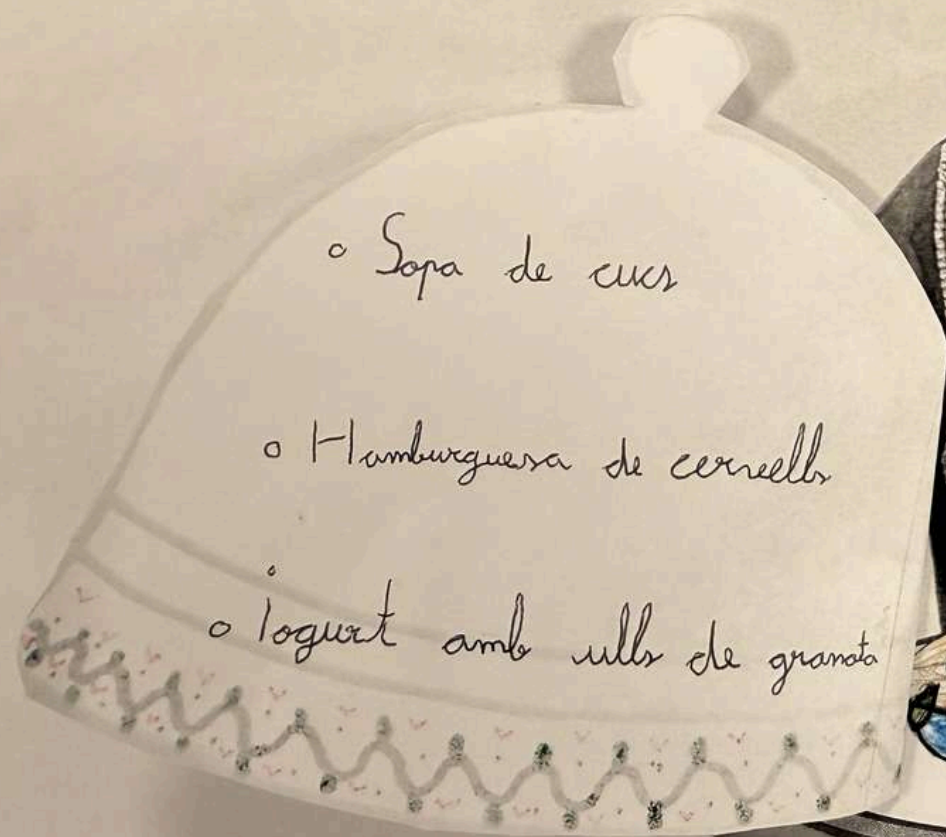 Sopa de cucs
Hamburguesa de cervells
Iogurt amb ulls de granota